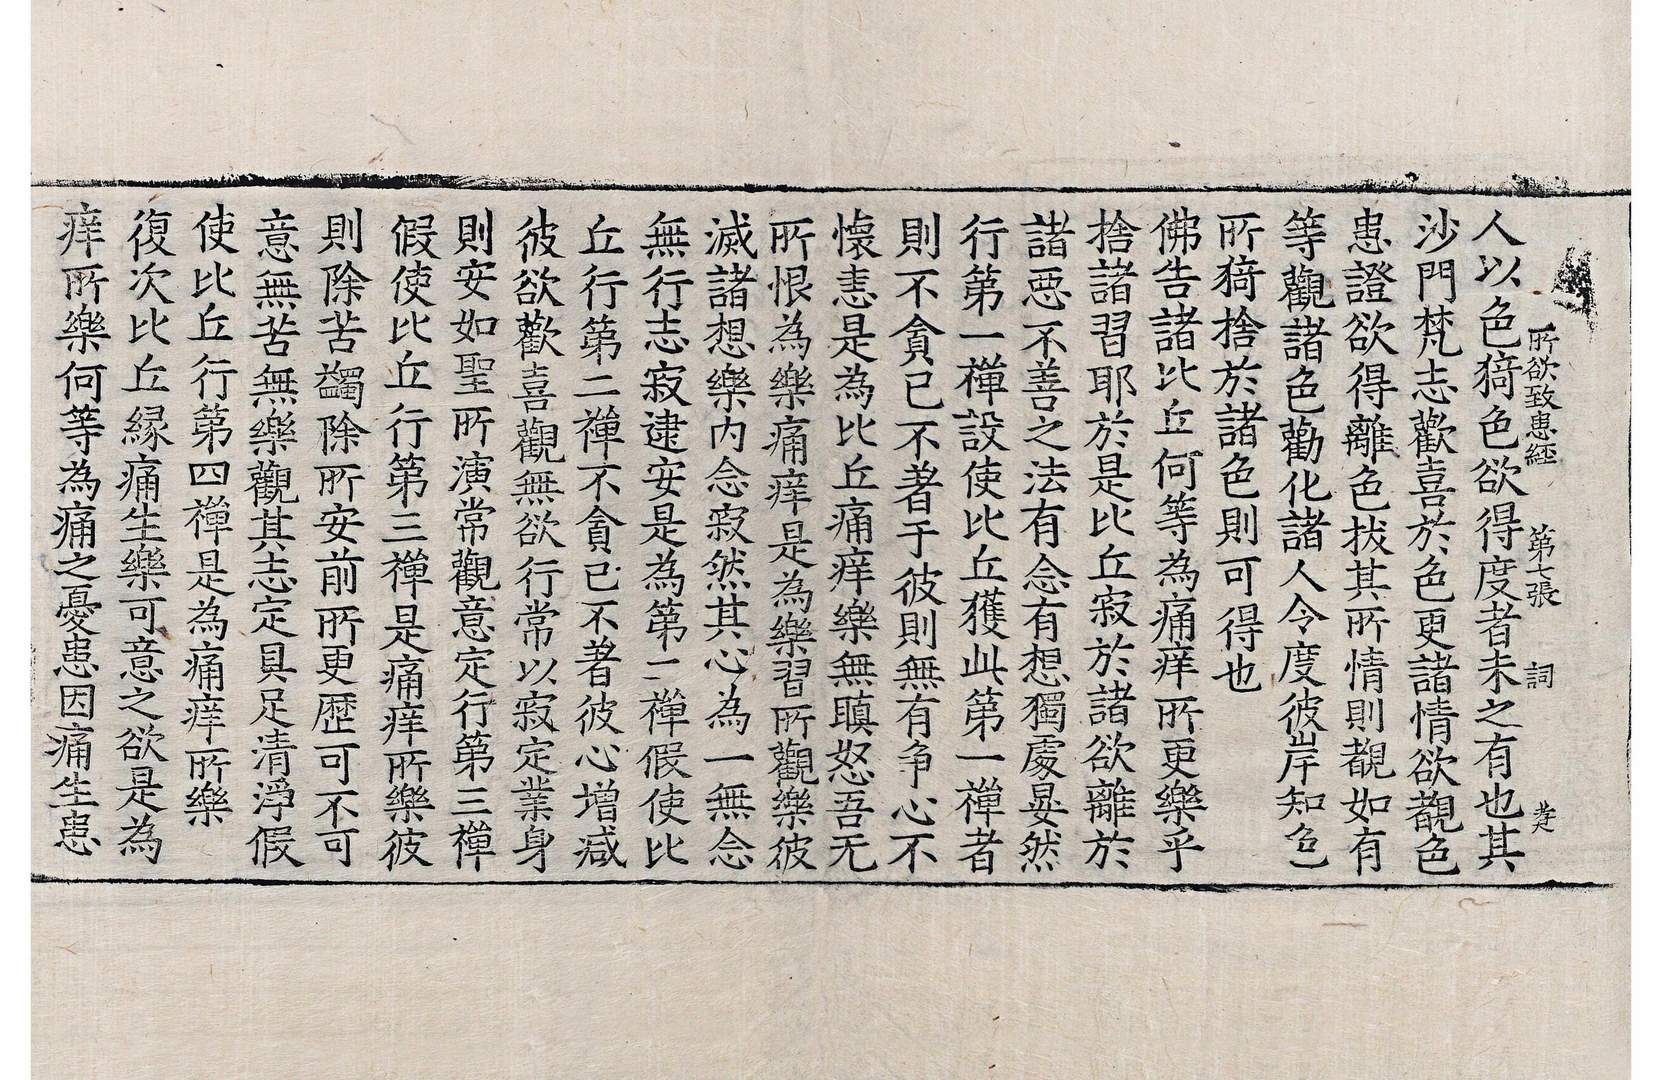 所欲致患經 第七張 詞
人以色猗色欲得度者未之有也其
沙門梵志歡喜於色更諸情欲覩色
患證欲得離色拔其所情則覩如有
等觀諸色勸化諸人令度彼岸知色
所猗捨於諸色則可得也
佛告諸比丘何等為痛痒所更樂乎
捨諸習耶於是比丘寂於諸欲離於
諸惡不善之法有念有想獨處晏然
行第一禪設使比丘獲此第一禪者
則不貪已不著于彼則無有争心不
懷恚是為比丘痛痒樂無瞋怒吾无
所恨為樂痛痒是為樂習所觀樂彼
滅諸想樂內念寂然其心為一無念
無行志寂逮安是為第二禪假使比
丘行第二禪不貪己不著彼心增減
彼欲歡喜觀無欲行常以寂定業身
則安如聖所演常觀意定行第三禪
假使比丘行第三禪是痛痒所樂彼
則除苦蠲除所安前所更歷可不可
意無苦無樂觀其志定具足清淨假
使比丘行第四禪是為痛痒所樂
復次比丘緣痛生樂可意之欲是為
痒所樂何等為痛之憂患因痛生患